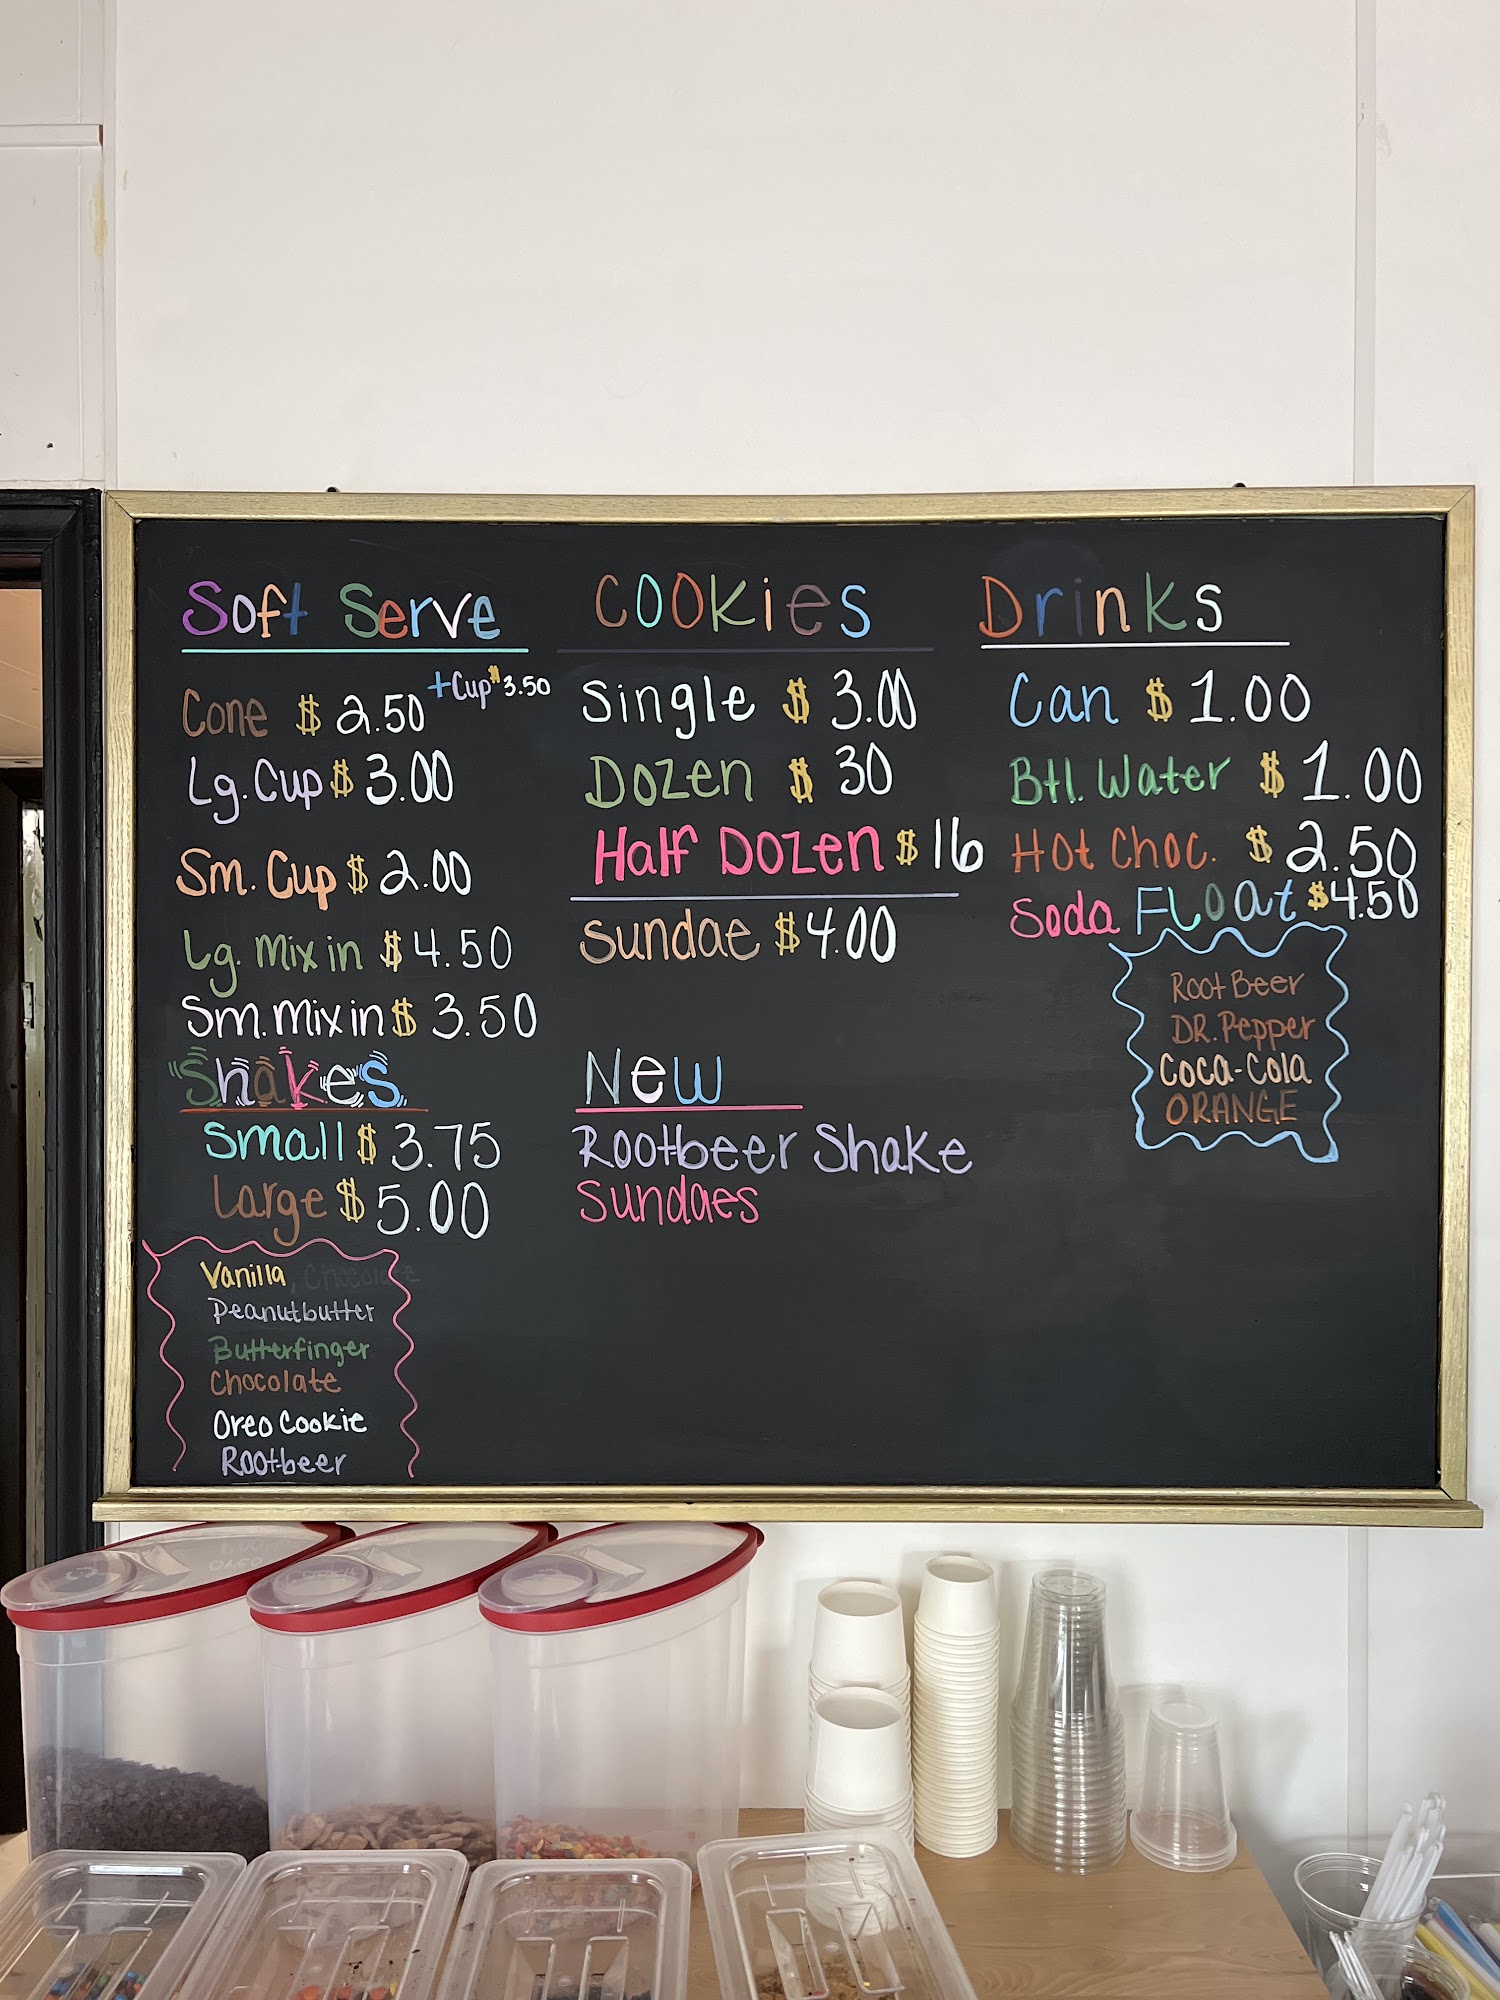 Soft Serve
Cone $ 2.50 +Cup $3.50
Lg. Cup $ 3.00
Sm. Cup $ 2.00
Lg. Mix in $ 4.50
Sm. Mix in $ 3.50
Shakes
Small $ 3.75
Large $ 5.00
Vanilla, Chocolate
Peanutbutter
Butterfinger
Chocolate
Oreo Cookie
Rootbeer
Cookies
Single $ 3.00
Dozen $ 30
Half Dozen $ 16
Sundae $ 4.00
New
Rootbeer Shake
Sundaes
Drinks
Can $ 1.00
Btl. Water $ 1.00
Hot Choc. $ 2.50
Soda Float $4.50
Root Beer
DR. Pepper
Coca-Cola
ORANGE
oreo